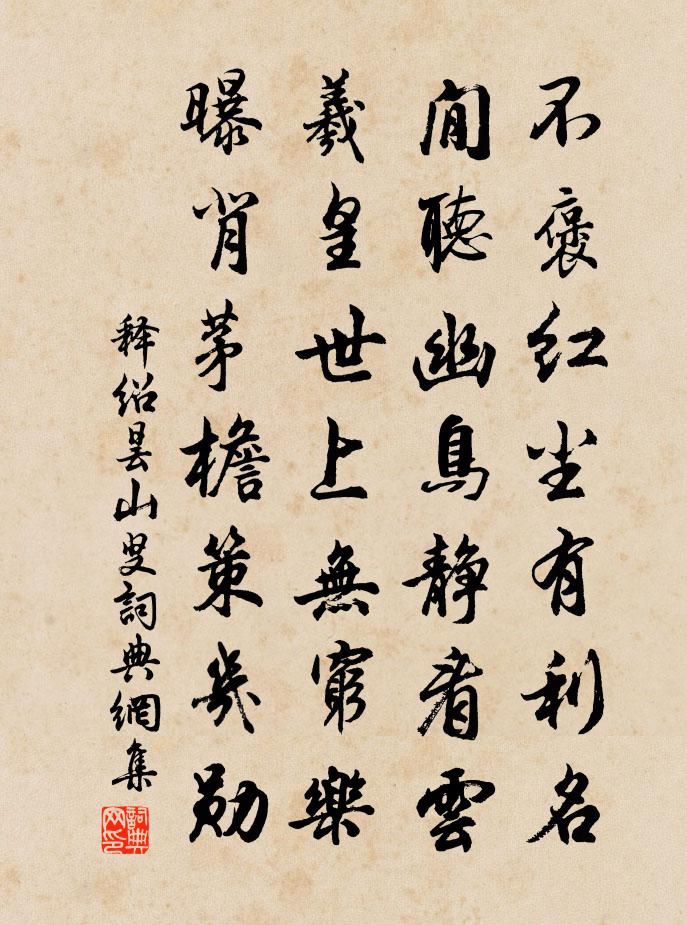 不褒红尘有利名
闲聽幽鳥静看雲
羲皇世上無窮樂
曝背茅檐策幾勋
释绍昙山叟詞典網集
詞典网印